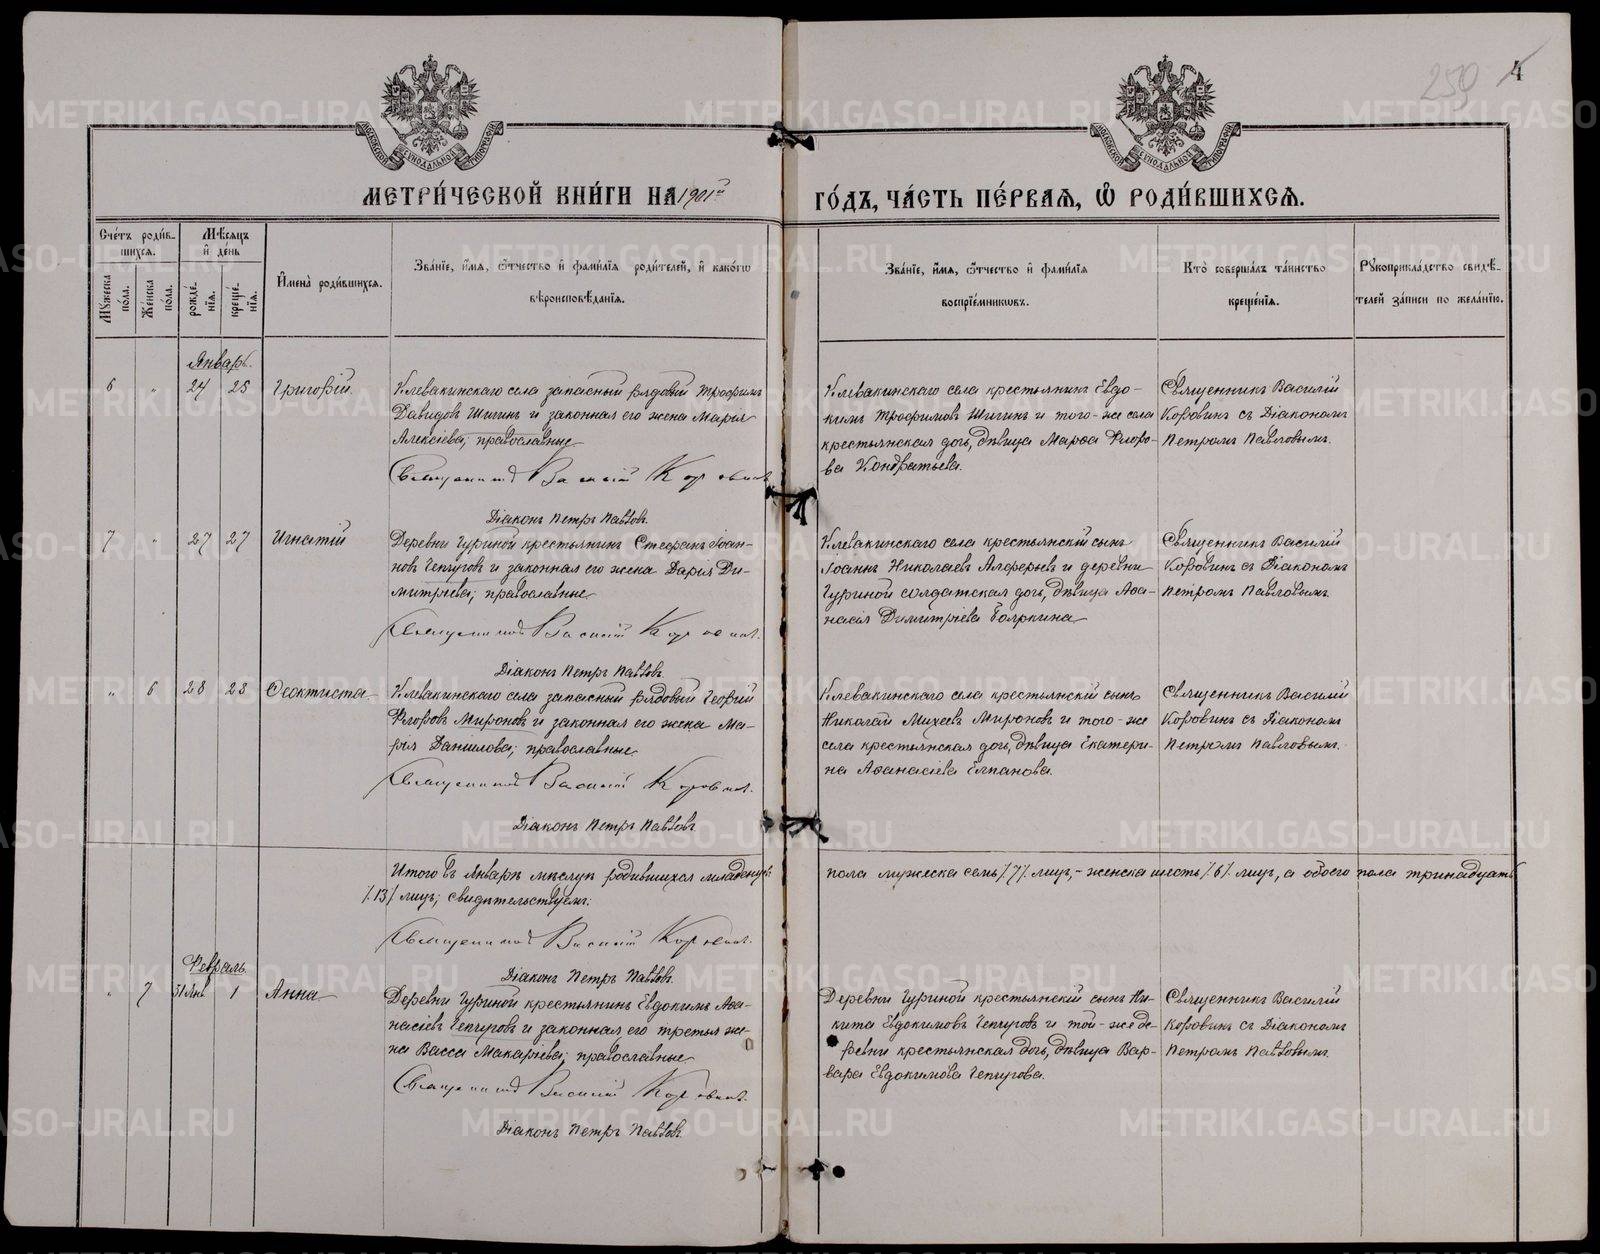 259 4
МЕТРИ́ЧЕСКОЙ КНИ́ГИ НА 1901й ГО́ДЪ, ЧА́СТЬ ПЕ́РВАЯ, Ѡ РОДИ́ВШИХСЯ.
Сче́тъ роди́вшихся.
Му́жеска по́ла.
Же́нска по́ла.
Мѣ́сяцъ и де́нь
рожде́нія.
креще́нія.
Имена̀ роди́вшихся.
Зва́ніе, и́мя, о́тчество и фами́лія роди́телей, и како́гѡ
вѣроисповѣ́данія.
Зва́ніе, и́мя, о́тчество и фами́лія
воспріе́мниковъ.
Кто̀ соверша́лъ та́инство
креще́нія.
Рукоприкла́дство свидѣ́-
телей за́писи по жела́нію.
Январь.
6 " 24 25 Григорій.
Клевакинскаго села запасный рядовый Трофимъ
Давидовъ Шигинъ и законная его жена Марія
Алексіева, православные
Священникъ Василій Коровинъ
Діаконъ Петръ Павловъ.
Клевакинскаго села крестьянинъ Евдо-
кимъ Трофимовъ Шигинъ и того-же села
крестьянская дочь, дѣвица Марѳа Флоро-
ва Кондратьева.
Священникъ Василій
Коровинъ съ Діакономъ
Петромъ Павловымъ.
7 " 27 27 Игнатій
Деревни Гуриной крестьянинъ Стефанъ Іоан-
новъ Чепчуговъ и законная его жена Дарія Ди-
митріева, православные
Священникъ Василій Коровинъ.
Діаконъ Петръ Павловъ.
Клевакинскаго села крестьянскій сынъ
Іоаннъ Николаевъ Алферьевъ и деревни
Гуриной солдатская дочь, дѣвица Аѳа-
насія Димитріева Бояркина
Священникъ Василій
Коровинъ съ Діакономъ
Петромъ Павловымъ.
" 6 28 28 Ѳеоктиста
Клевакинскаго села запасный рядовый Георгій
Флоровъ Мироновъ и законная его жена Ма-
рія Данилова, православные
Священникъ Василій Коровинъ.
Діаконъ Петръ Павловъ
Клевакинскаго села крестьянскій сынъ
Николай Михеевъ Мироновъ и того-же
села крестьянская дочь, дѣвица Екатери-
на Аѳанасіева Елпанова.
Священникъ Василій
Коровинъ съ Діакономъ
Петромъ Павловымъ.
Итого въ Январѣ мѣсяцѣ родившихся младенцевъ пола мужеска семь /7/ лицъ, - женска шесть /6/ лицъ, а обоего пола тринадцать
/13/ лицъ, свидѣтельствуемъ:
Священникъ Василій Коровинъ.
Діаконъ Петръ Павловъ.
Февраль.
" 7 31 Янв 1 Анна
Деревни Гуриной крестьянинъ Евдокимъ Аѳа-
насіевъ Чепчуговъ и законная его третья же-
на Васса Макаріева, православные
Священникъ Василій Коровинъ.
Діаконъ Петръ Павловъ.
Деревни Гуриной крестьянскій сынъ Ни-
кита Евдокимовъ Чепчуговъ и той-же де-
ревни крестьянская дочь, дѣвица Вар-
вара Евдокимова Чепчугова.
Священникъ Василій
Коровинъ съ Діакономъ
Петромъ Павловымъ.
METRIKI.GASO-URAL.RU